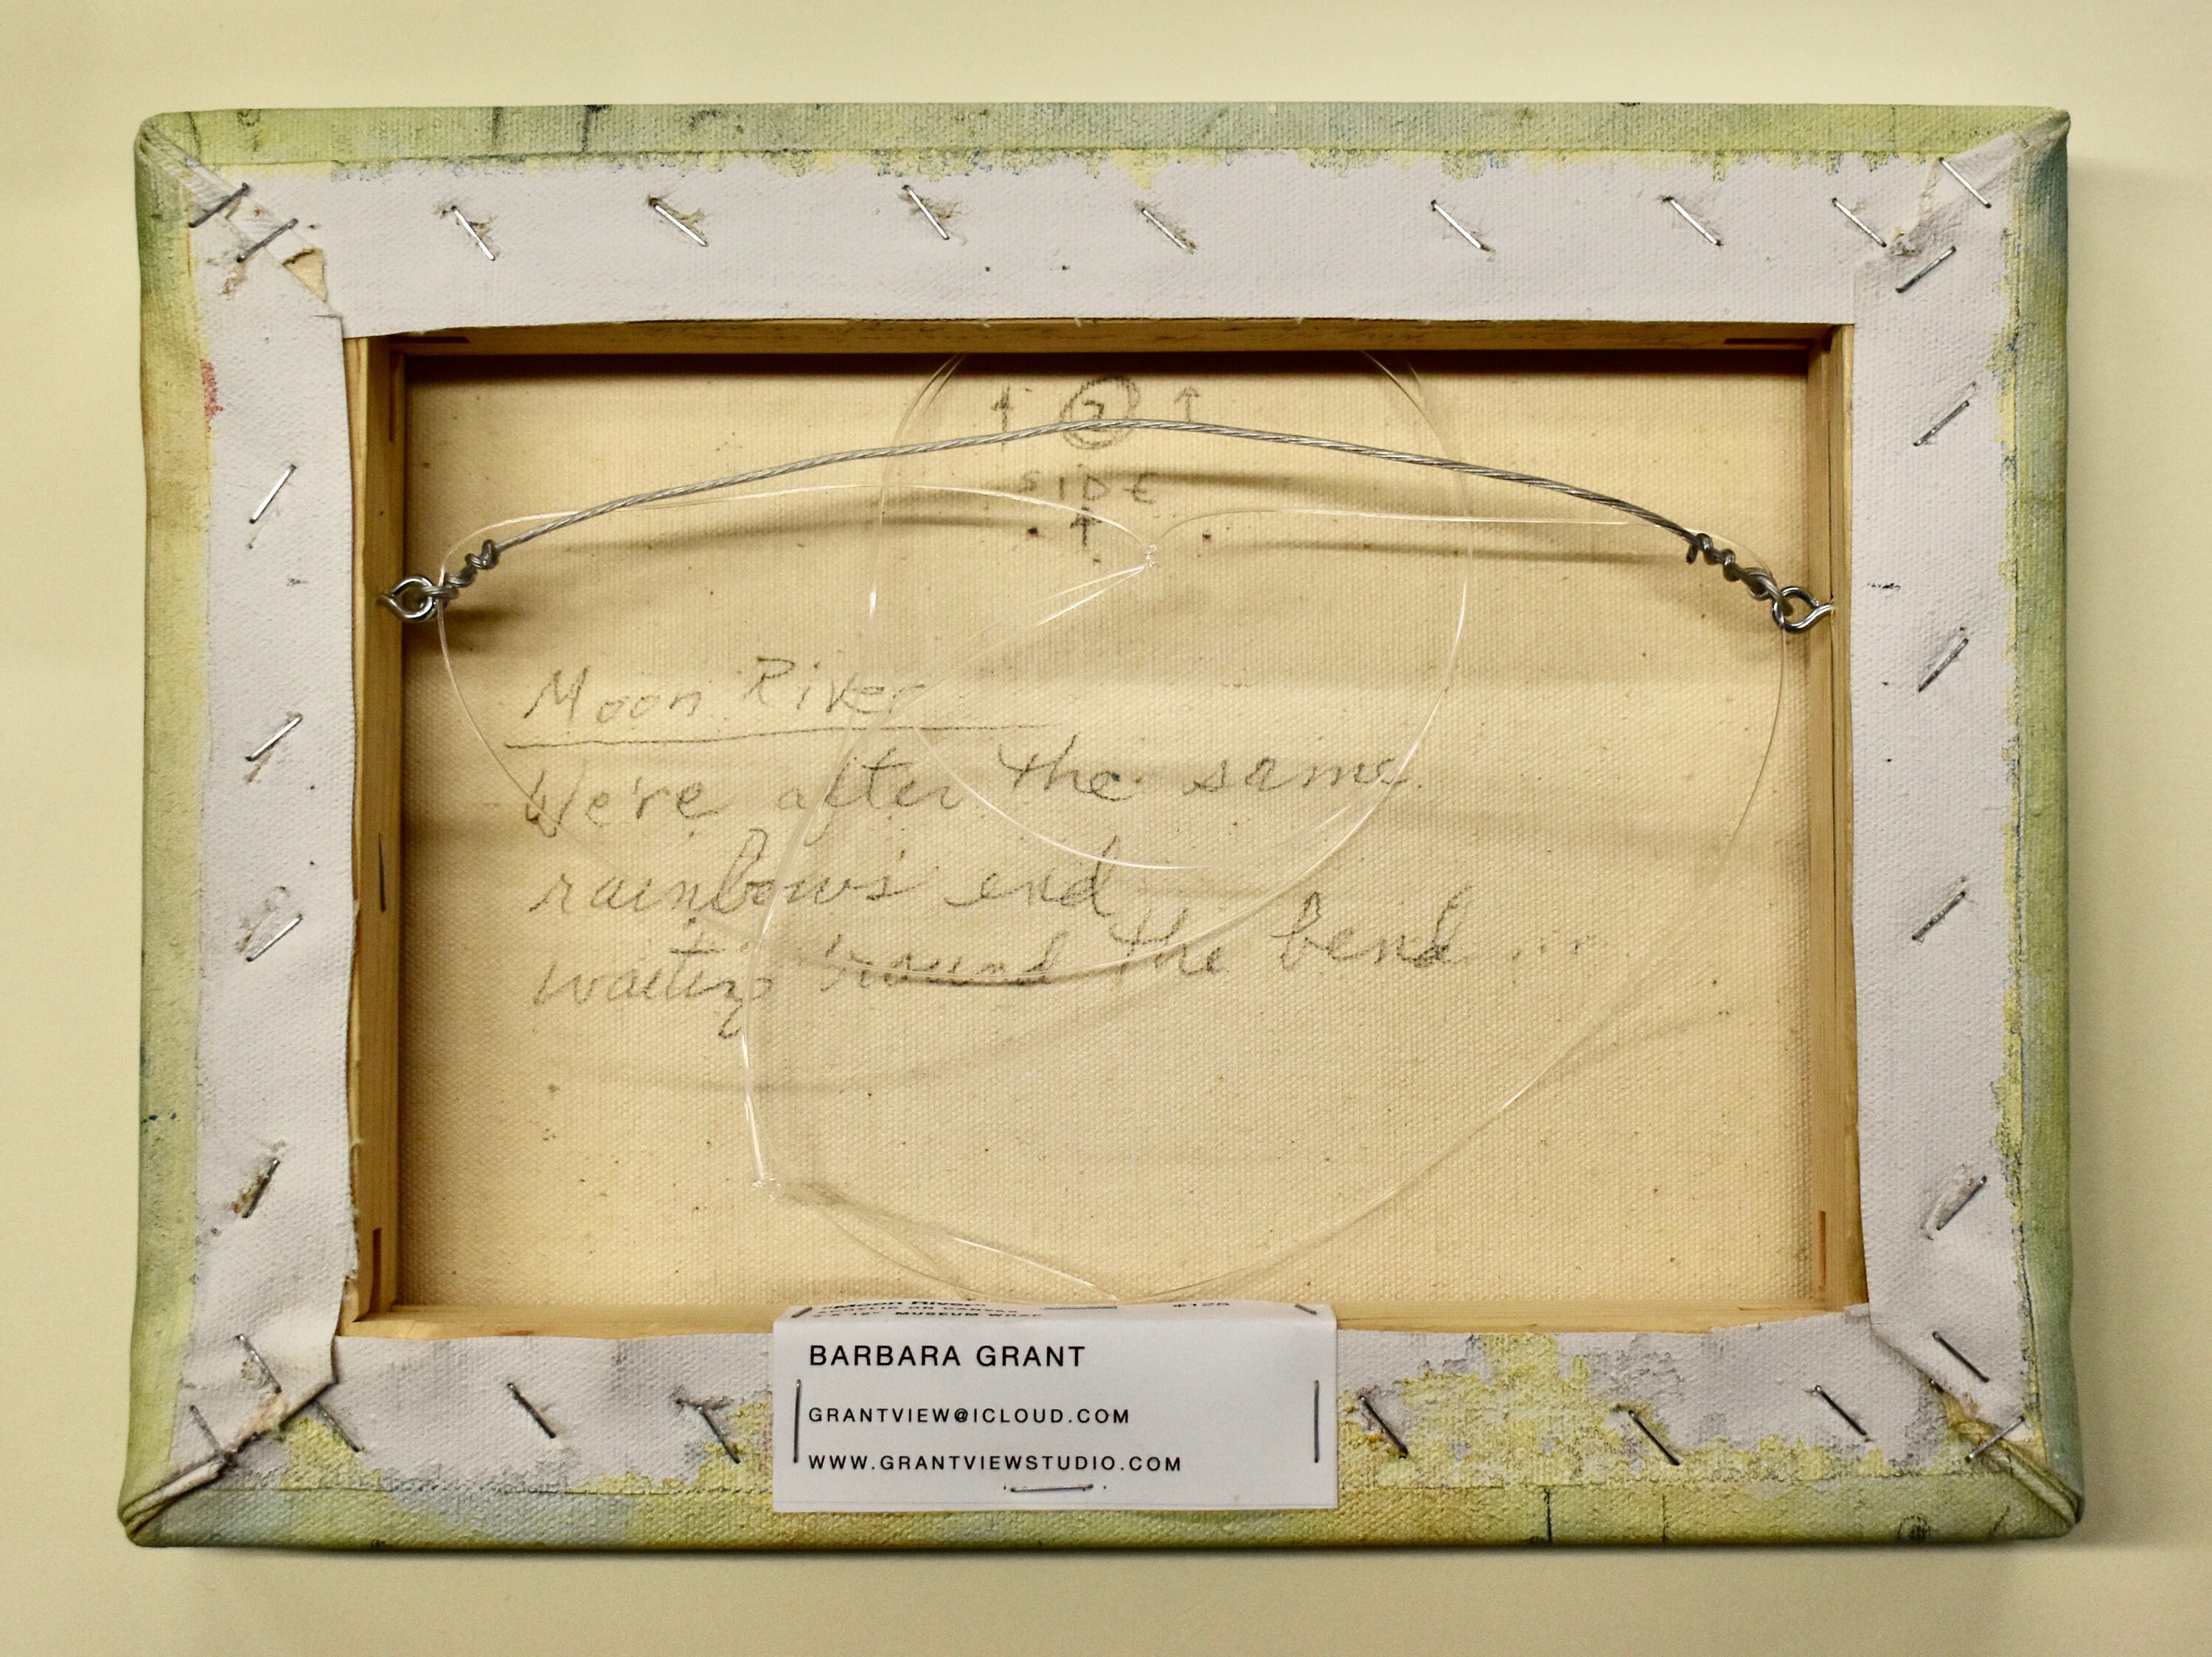 2
SIDE
Moon River
We're after the same
rainbow's end
waiting 'round the bend...
"Moon River"
ACRYLIC ON CANVAS $125
MUSEUM WRAP
BARBARA GRANT
GRANTVIEW@ICLOUD.COM
WWW.GRANTVIEWSTUDIO.COM